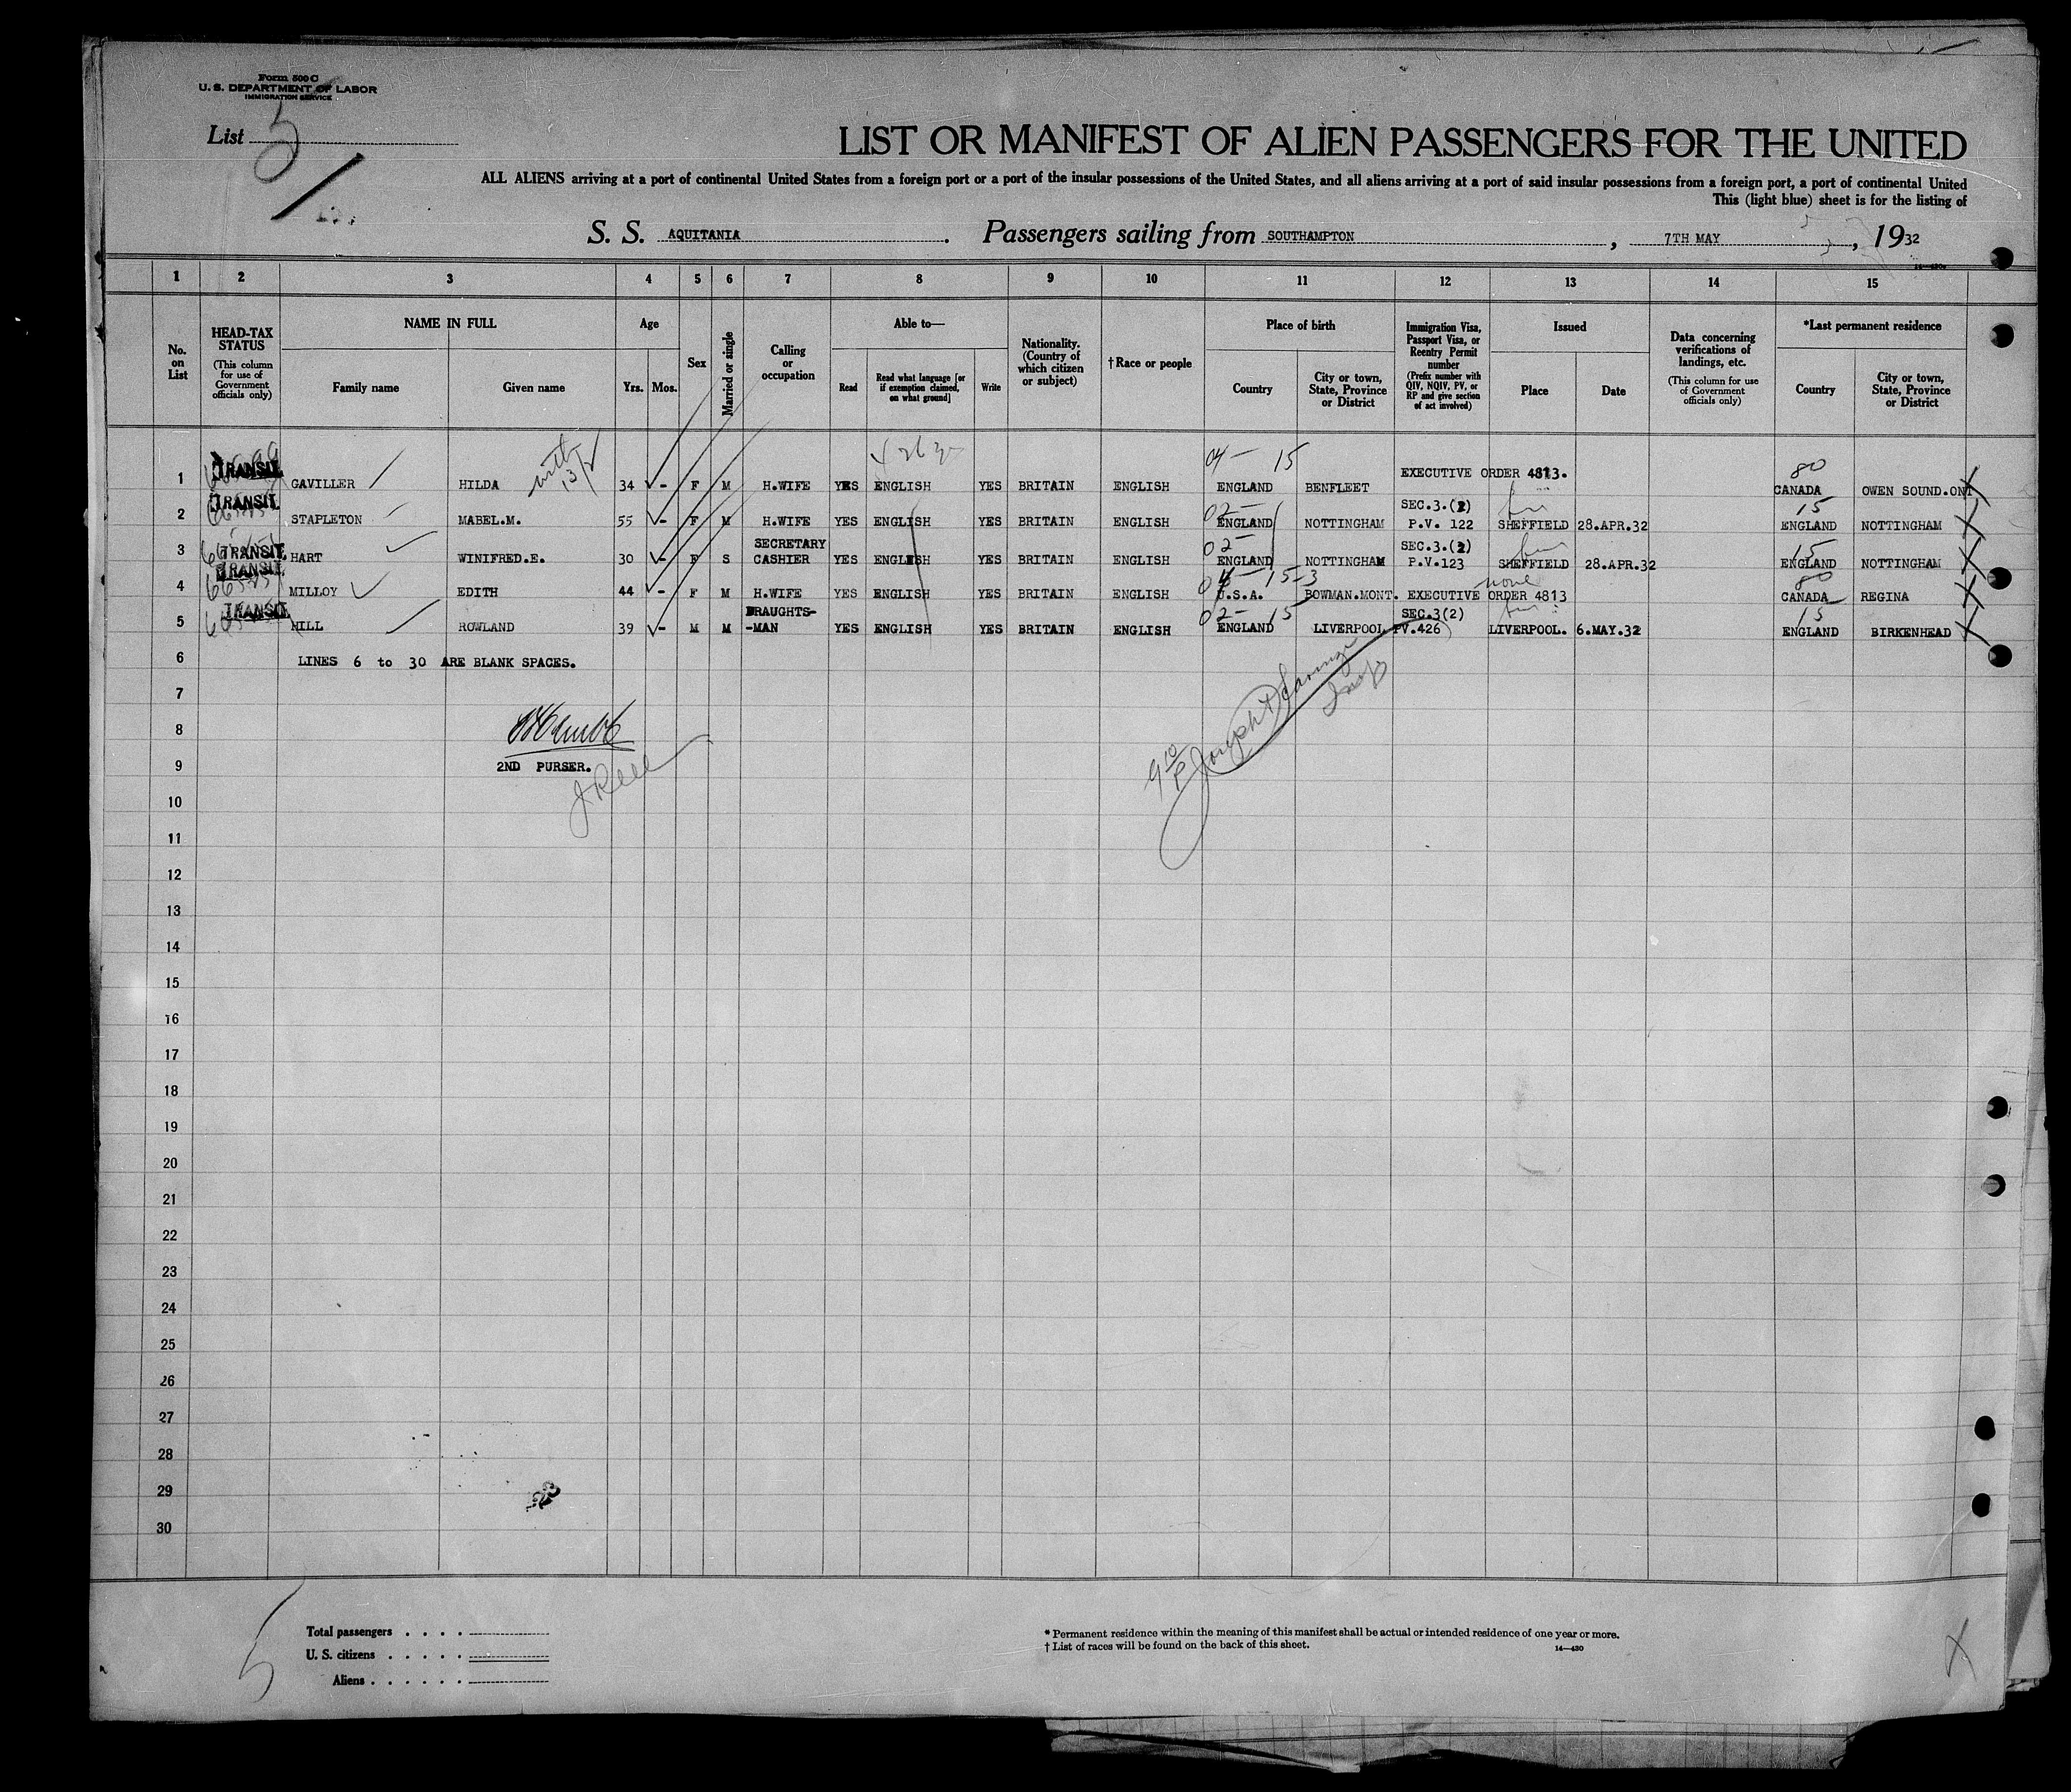 Form 500 C
U. S. DEPARTMENT OF LABOR
IMMIGRATION SERVICE
List 5
LIST OR MANIFEST OF ALIEN PASSENGERS FOR THE UNITED
ALL ALIENS arriving at a port of continental United States from a foreign port or a port of the insular possessions of the United States, and all aliens arriving at a port of said insular possessions from a foreign port, a port of continental United
This (light blue) sheet is for the listing of
S. S. AQUITANIA. Passengers sailing from SOUTHAMPTON, 7TH MAY, 1932
1 2 3 4 5 6 7 8 9 10 11 12 13 14 15
No. on List
HEAD-TAX STATUS (This column for use of Government officials only)
NAME IN FULL
Family name
Given name
Age
Yrs. Mos.
Sex
Married or single
Calling or occupation
Able to—
Read
Read what language [or if exemption claimed, on what ground]
Write
Nationality. (Country of which citizen or subject)
† Race or people
Place of birth
Country
City or town, State, Province or District
Immigration Visa, Passport Visa, or Reentry Permit number (Prefix number with QIV, NQIV, PV, or RP and give section of act involved)
Issued
Place
Date
Data concerning verifications of landings, etc. (This column for use of Government officials only)
*Last permanent residence
Country
City or town, State, Province or District
04— 15 80
1 TRANSIT. GAVILLER HILDA 34 - F M H.WIFE YES ENGLISH YES BRITAIN ENGLISH ENGLAND BENFLEET EXECUTIVE ORDER 4813. CANADA OWEN SOUND.ONT
02— SEC.3.(2) 15
2 TRANSIT. STAPLETON MABEL.M. 55 - F M H.WIFE YES ENGLISH YES BRITAIN ENGLISH ENGLAND NOTTINGHAM P.V. 122 SHEFFIELD 28.APR.32 ENGLAND NOTTINGHAM
SECRETARY 02— SEC.3.(2) 15
3 TRANSIT. HART WINIFRED.E. 30 - F S CASHIER YES ENGLISH YES BRITAIN ENGLISH ENGLAND NOTTINGHAM P.V.123 SHEFFIELD 28.APR.32 ENGLAND NOTTINGHAM
15-3 none 80
4 TRANSIT. MILLOY EDITH 44 - F M H.WIFE YES ENGLISH YES BRITAIN ENGLISH U.S.A. BOWMAN.MONT. EXECUTIVE ORDER 4813 CANADA REGINA
DRAUGHTS- 02— 15 SEC.3(2) 15
5 TRANSIT. HILL ROWLAND 39 - M M -MAN YES ENGLISH YES BRITAIN ENGLISH ENGLAND LIVERPOOL PV.426 LIVERPOOL. 6.MAY.32 ENGLAND BIRKENHEAD
6 LINES 6 to 30 ARE BLANK SPACES.
7
8
9 2ND PURSER.
10
11
12
13
14
15
16
17
18
19
20
21
22
23
24
25
26
27
28
29
30
5
Total passengers
U. S. citizens
Aliens
* Permanent residence within the meaning of this manifest shall be actual or intended residence of one year or more.
† List of races will be found on the back of this sheet.
14—430